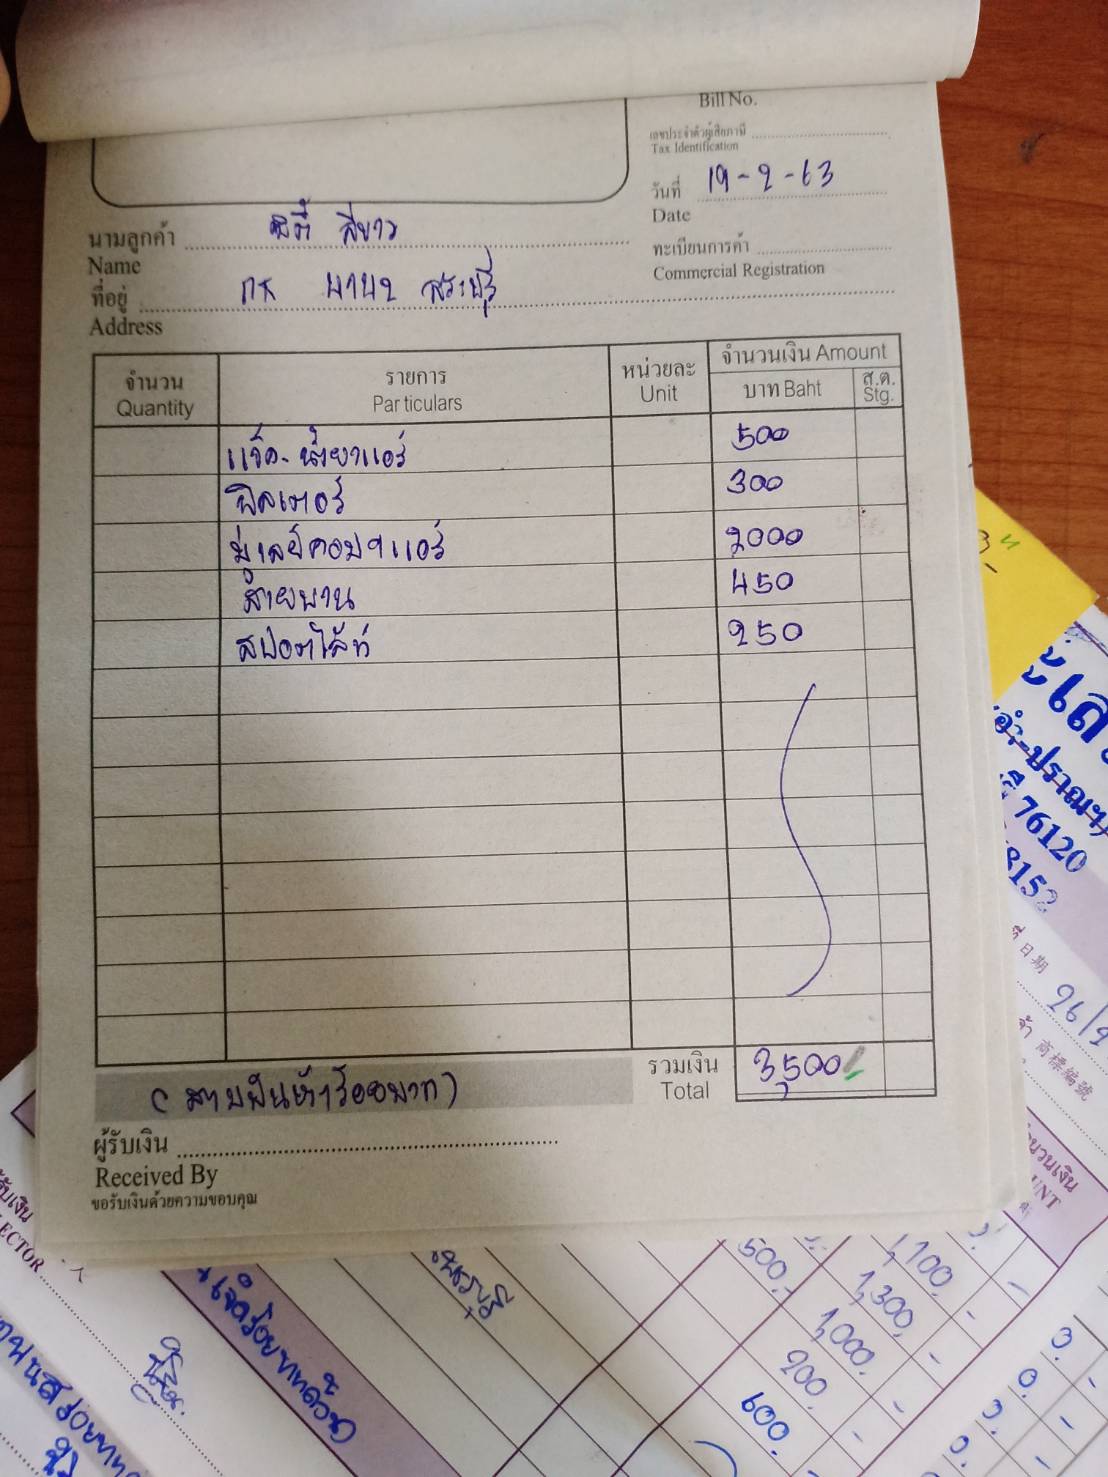 Bill No.
เลขประจำตัวผู้เสียภาษี
Tax Identification
วันที่ 19-2-63
Date
นามลูกค้า สีขาว
Name
ทะเบียนการค้า
Commercial Registration
ที่อยู่ กท สระบุรี
Address
จำนวน รายการ หน่วยละ จำนวนเงิน Amount
Quantity Particulars Unit บาท Baht ส.ต. Stg.
แจ๊ค-น้ำยาแอร์ 500
ฟิลเตอร์ 300
มู่เลย์คอมฯแอร์ 2000
สายพาน 450
สปอตไล้ท์ 250
รวมเงิน 3,500
Total
(สามพันห้าร้อยบาท)
ผู้รับเงิน
Received By
ขอรับเงินด้วยความขอบคุณ
76120
8152
日期
26/
商標編號
จำนวนเงิน
UNT
รับเงิน
ECTOR
500.-
1,100.-
1,300.-
1,000.-
200.-
600.-